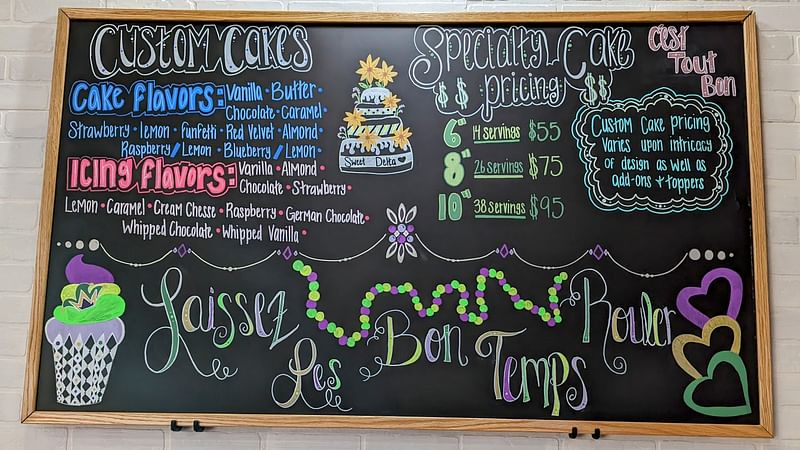 Custom Cakes
Cake Flavors: Vanilla • Butter •
Chocolate • Caramel •
Strawberry • lemon • Funfetti • Red Velvet • Almond •
Raspberry/Lemon • Blueberry/Lemon •
Icing Flavors: Vanilla • Almond •
Chocolate • Strawberry •
Lemon • Caramel • Cream Chesse • Raspberry • German Chocolate •
Whipped Chocolate • Whipped Vanilla •
Sweet Delta
Specialty Cake
$ $ pricing $$
6" 14 servings $55
8" 26 servings $75
10" 38 servings $95
C'est
Tout
Bon
Custom Cake pricing
Varies upon intricacy
of design as well as
add-ons + toppers
Laissez
Les
Bon
Temps
Rouler